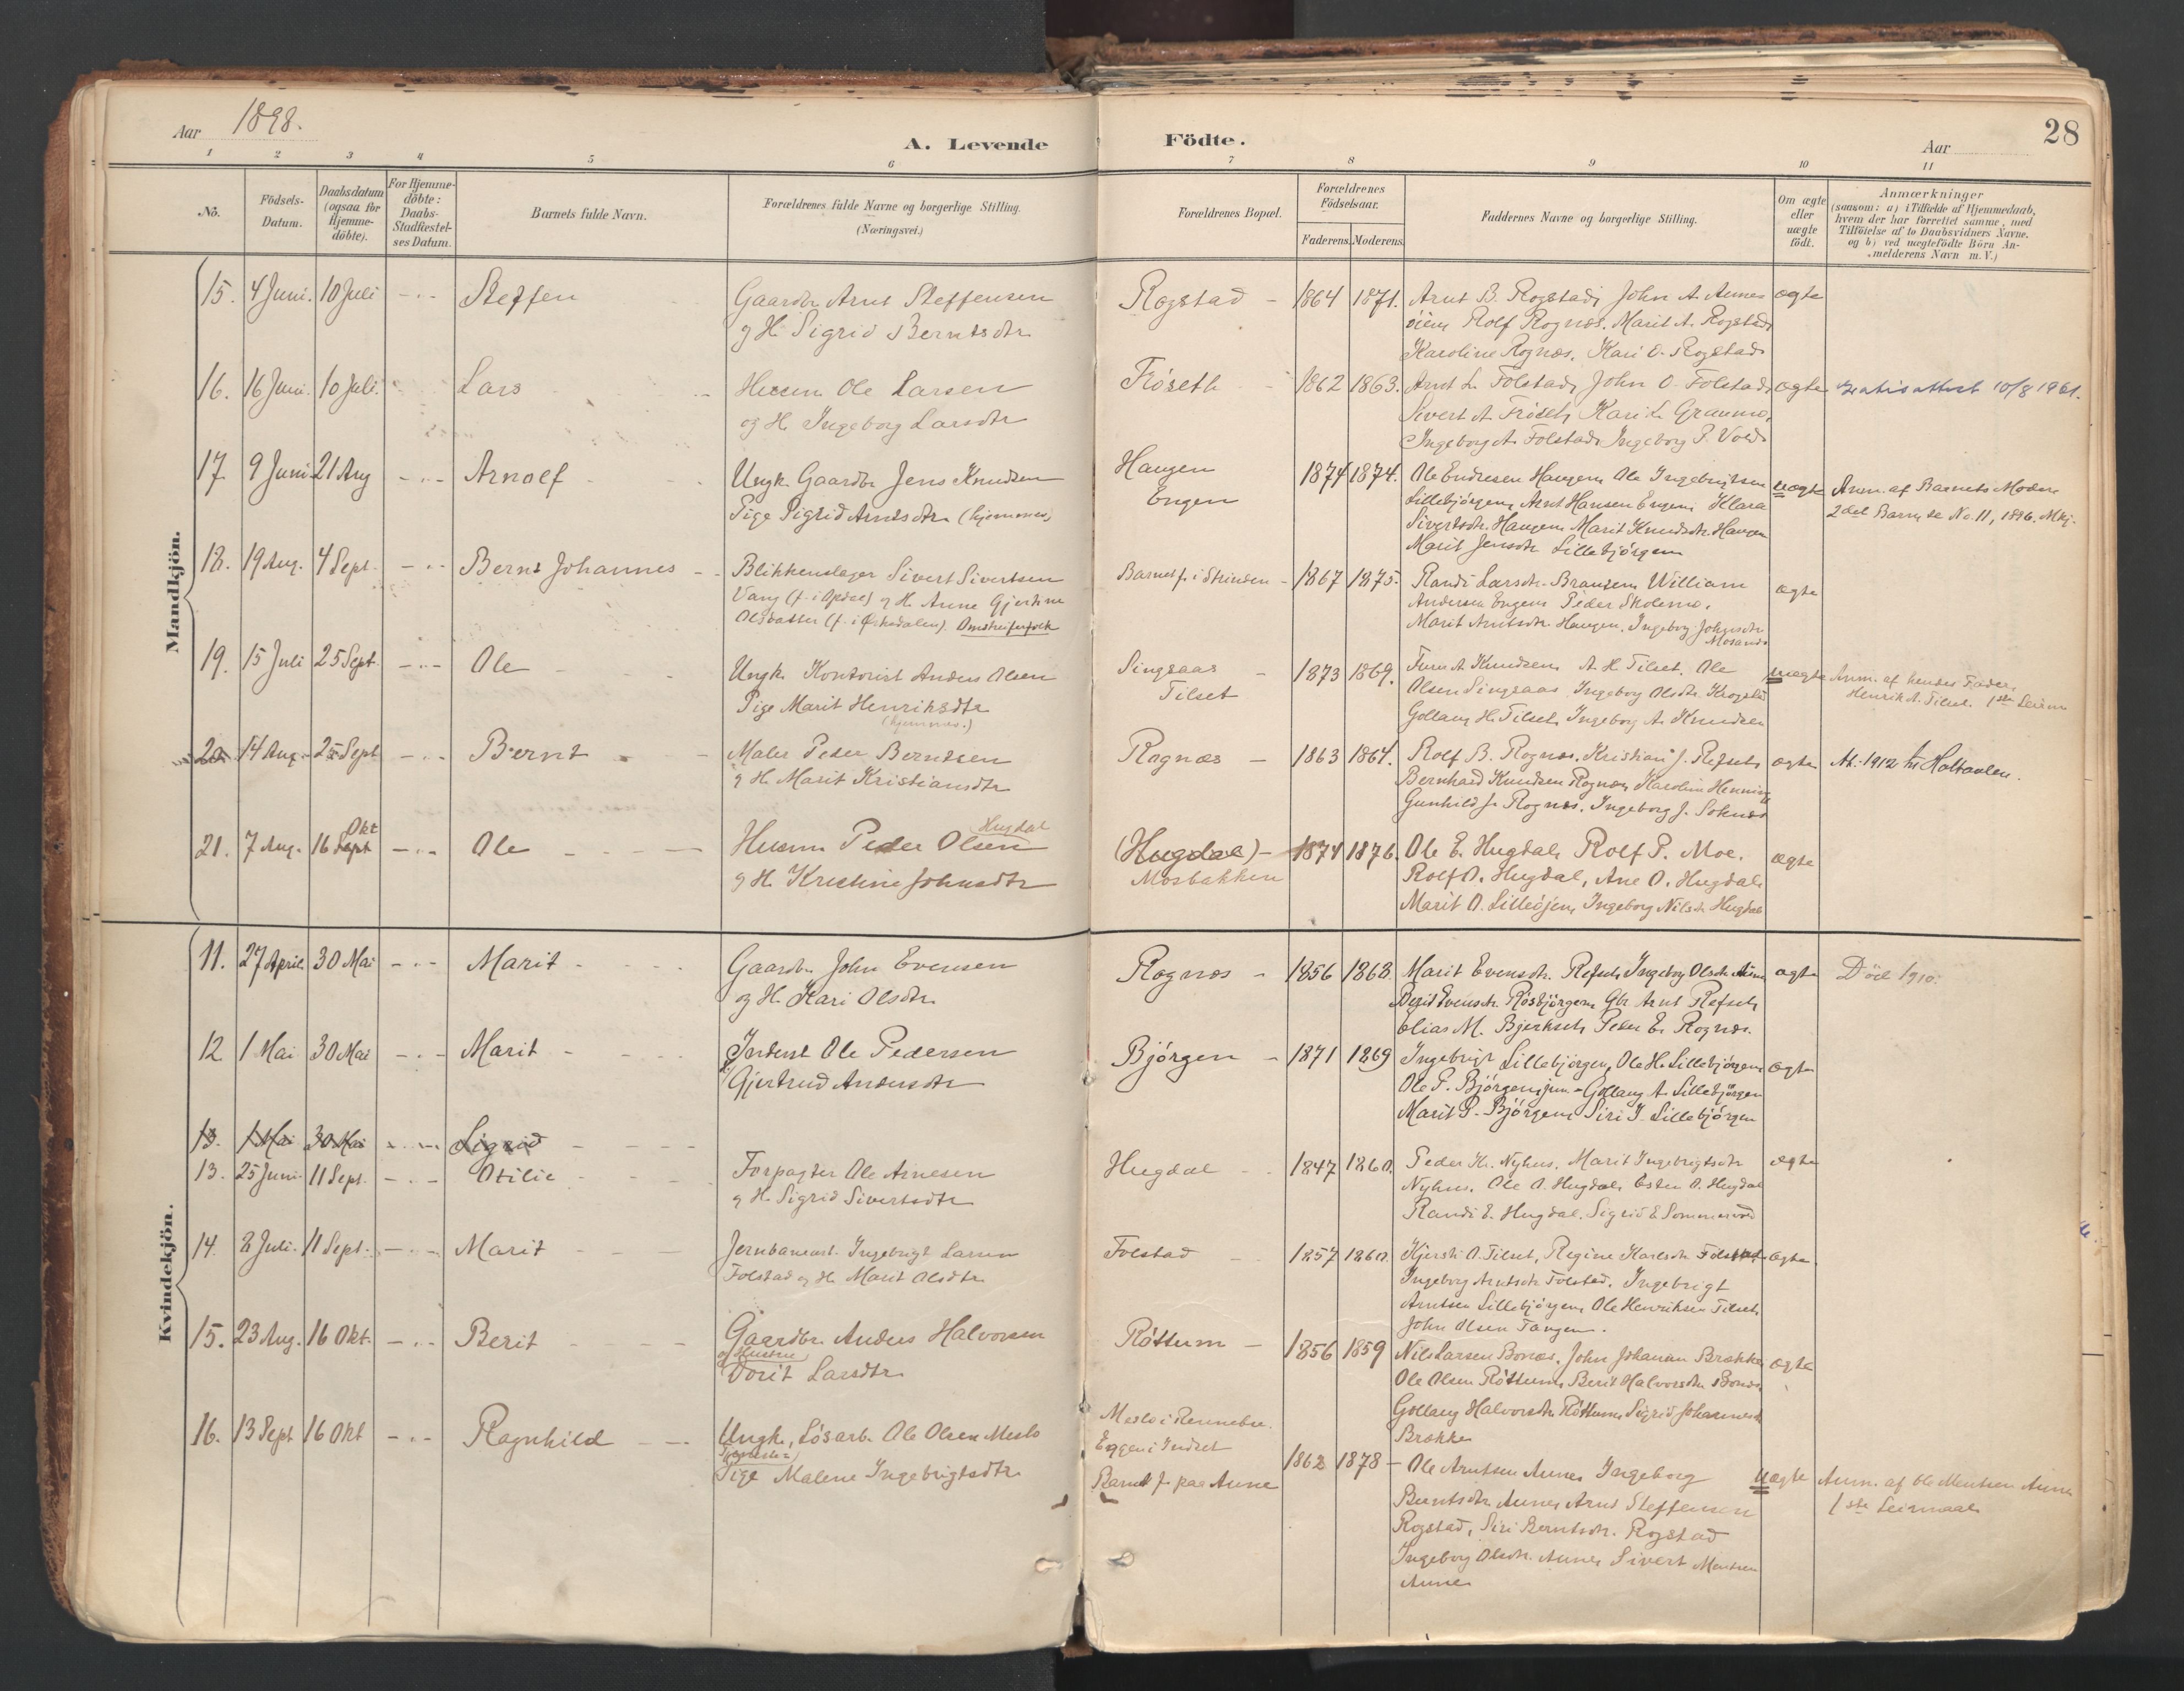 Aar 1898.
A. Levende Födte.
Aar
28
1 2 3 4 5 6 7 8 9 10 11
No.
Födsels-Datum.
Daabsdatum (ogsaa for Hjemme-döbte).
For Hjemme-döbte: Daabs-Stadfæstel-ses Datum.
Barnets fulde Navn.
Forældrenes fulde Navne og borgerlige Stilling.
(Næringsvei.)
Forældrenes Bopæl.
Forældrenes Födselsaar.
Faderens. Moderens.
Faddernes Navne og borgerlige Stilling.
Om ægte eller uægte födt.
Anmærkninger
(saasom: a) i Tilfælde af Hjemmedaab,
hvem der har forrettet samme, med
Tilföielse af to Daabsvidners Navne.
og b) ved uægtefödte Börn An-
melderens Navn m. V.)
Mandkjön.
15. 4 Juni. 10 Juli Steffen Gaardbr Arnt Steffensen Rogstad 1864 1871. Arnt B. Rogstad, John A. Aunes ægte
og H. Sigrid Berntsdtr öien, Rolf Rognæs. Marit A. Rogstad,
Karoline Rognæs. Kari O. Rogstad
16. 16 Juni. 10 Juli. Lars Husm Ole Larsen Fröseth 1862 1863. Arnt L. Folstad, John O. Folstad, ægte gratisattest 10/8 1961.
og H. Ingeborg Larsdtr Sivert A. Fröseth, Kari L. Granmo,
Ingeborg A. Folstad, Ingeborg P. Vold
17. 9 Juni 21 Aug Arnolf Ungk. Gaardbr Jens Knudsen Haugen 1874 1874. Ole Endresen Haugen, Ole Ingebrigtsen uægte Anm. af Barnets Moder
Pige Sigrid Arntsdtr (hjemmev.) Engen Lillebjörgen, Arnt Hansen Engen, Klara 2det Barn, se No. 11, 1896. Mkj.
Sivertsdtr. Haugen, Marit Knudsdtr. Haugen
Marit Jensdtr Lillebjörgen
18. 19 Aug. 4 Sept. Bernt Johannes Blikkenslager Sivert Sivertsen Barnet f. i Strinden 1867 1875. Randi Larsdtr. Bransen, William ægte
Vang (f. i Opdal) og H. Anne Gjertine Andersen Engen, Peder Skolemo,
Olsdatter (f. i Örkedalen). Omstreiferfolk Marit Arntsdtr. Haugen, Ingeborg Johnsdtr
Mosand
19. 15 Juli 25 Sept. Ole Ungk. Kontorist Anders Olsen Singsaas 1873 1869. A. Knudsen, A. H. Tilset. Ole uægte Anm. af hendes Fader
Pige Marit Henriksdtr Tilset Olsen Singsaas, Ingeborg Olsdtr. Krogstad Henrik A. Tilset. 1ste Leierm
(hjemmev.) Gollaug H. Tilset, Ingeborg A. Knudsen
20 14 Aug. 25 Sept Bernt Maler Peder Berntsen Rognæs 1863 1864. Rolf B. Rognæs, Kristian J. Refseth ægte At. 1912 til Holtaalen.
og H. Marit Kristiansdtr Bernhard Knudsen Rognæs, Karoline Henning
Gunhild J. Rognæs. Ingeborg J. Soknæs
21. 7 Aug. 16 Sept Okt Ole Husm Peder Olsen Hugdal (Hugdal) 1874 1876. Ole E. Hugdal, Rolf P. Moe. ægte
og H. Kristine Johnsdtr Mosbakken Rolf O. Hugdal, Ane O. Hugdal,
Marit O. Lilleöyen, Ingeborg Nilsdtr Hugdal
Kvindekjön.
11. 27 April 30 Mai Marit Gaardbr John Evensen Rognæs 1856 1868. Marit Evensdtr. Refseth, Ingeborg Olsdtr ægte Död 1910.
og H. Kari Olsdtr. Evensdtr. Rösbjörgen, Gbr Arnt Refseth
Elias M. Bjerkseth, Peder E. Rognæs.
12. 1 Mai 30 Mai Marit Inderst Ole Pedersen Björgen 1871 1869 Ingebrigt Lillebjörgen, Ole H. Lillebjörgen ægte
Gjertrud Andersdtr Ole P. Björgen, jun. Gollaug A. Lillebjörgen
Marit P. Björgen, Siri I. Lillebjörgen
13. 1 Mai 30 Mai Sigrid
13. 25 Juni. 11 Sept. Otilie Forpagter Ole Arnesen Hugdal 1847 1860. Peder Kr. Nyhus, Marit Ingebrigtsdtr ægte
og H. Sigrid Sivertsdtr Nyhus, Ole A. Hugdal, Esten O. Hugdal
Randi E. Hugdal. Sigrid E Sommervold
14. 8 Juli. 11 Sept. Marit Jernbanearb. Ingebrigt Larsen Folstad 1857 1860. Kjersti O. Tilset, Regine Karlsdtr Folstad ægte.
Folstad og H. Marit Olsdtr Ingeborg Arntsdtr Folstad, Ingebrigt
Arntsen Lillebjörgen, Ole Henriksen Tilset,
John Olsen Tangen.
15. 23 Aug. 16 Okt. Berit Gaardbr. Anders Halvorsen Röttum 1856 1859 Nils Larsen Bonæs, John Johansen Brække, ægte
og Hustru Ole Olsen Röttum, Berit Halvorsdtr Bonæs
Dorit Larsdtr. Gollaug Halvorsdtr Röttum, Sigrid Johannesdtr
Brække
16. 13 Sept 16 Okt Ragnhild Ungk. Lösarb. Ole Olsen Meslo Meslo i Rennebu. Eggen i Indset 1862 1878 Ole Arntsen Aune, Ingeborg uægte Anm. af Ole Mentsen Aune
Pige Malene Ingebrigtsdtr Barnet f. paa Aune Berntsdtr Aune, Arnt Steffensen 1ste Leiermaal
Rogstad, Siri Berntsdtr. Rogstad
Ingeborg Olsdtr. Aune, Sivert Mentsen
Aune